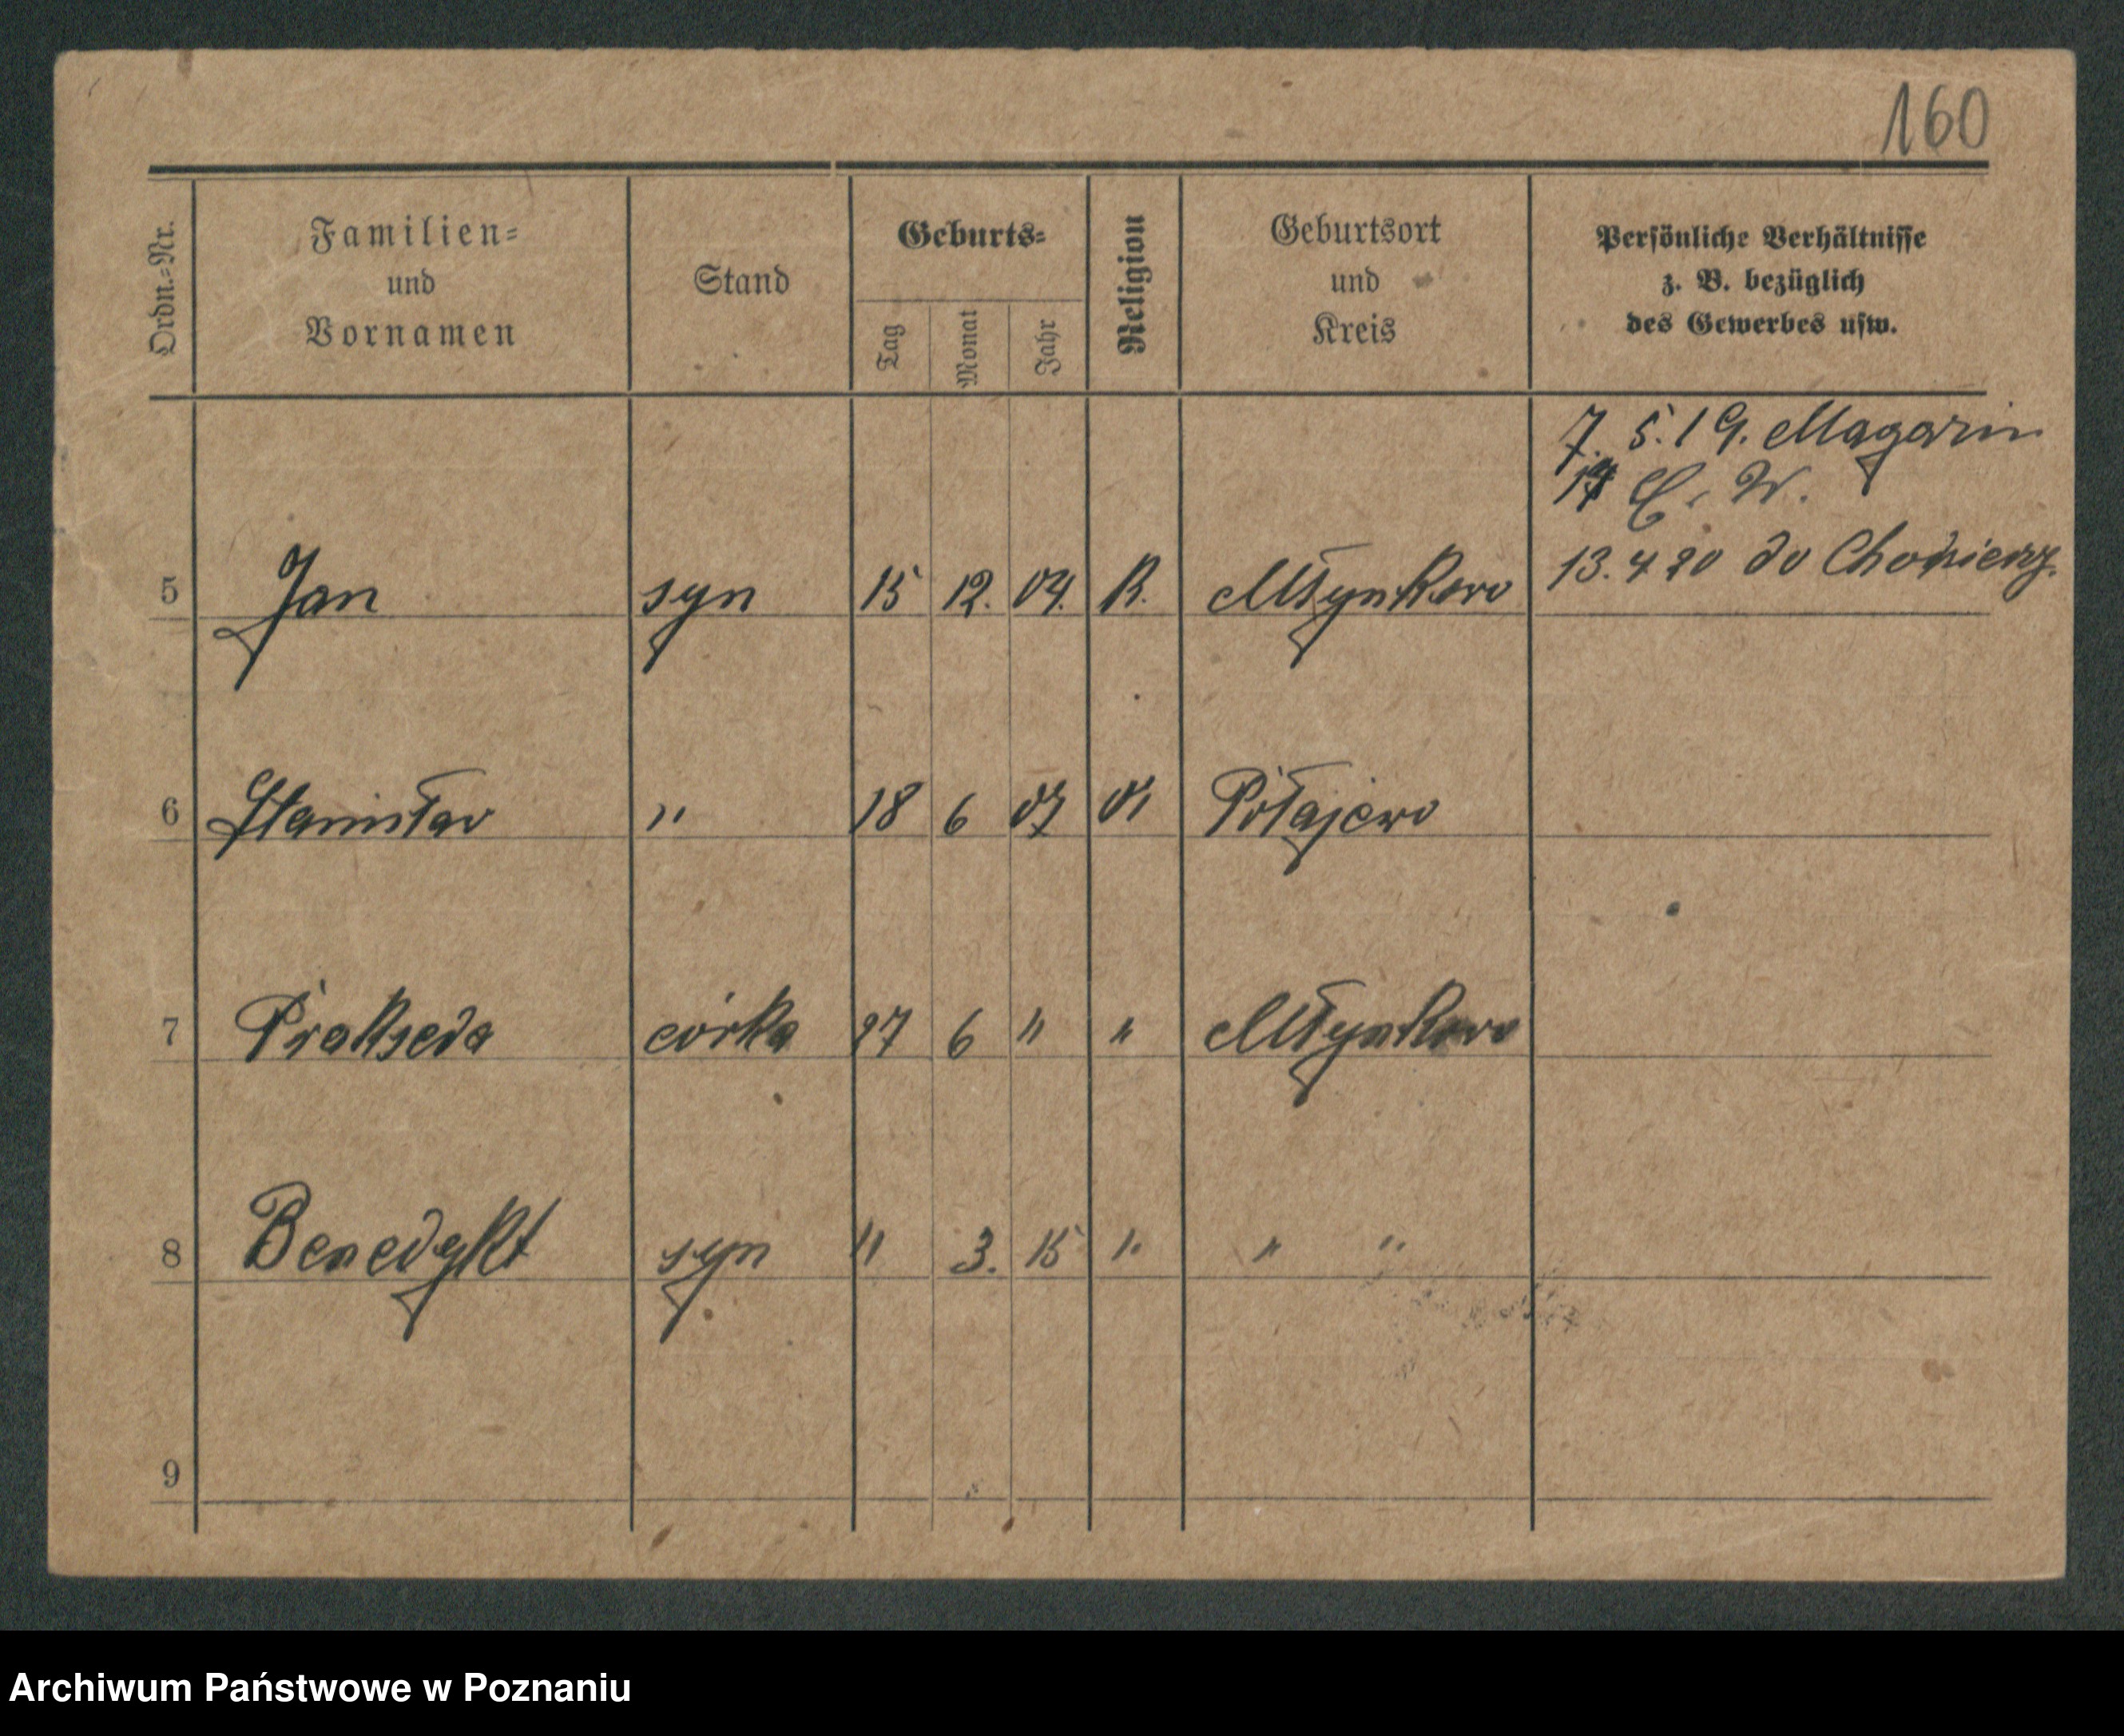 160
Ordn.-Nr.
Familien-
und
Vornamen
Stand
Geburts-
Tag
Monat
Jahr
Religion
Geburtsort
und
Kreis
Persönliche Verhältnisse
z. B. bezüglich
des Gewerbes usw.
7. 5. 19. Magazin
C. W.
13. 4 20 do
5 Jan syn 15 12. 04. R. Młynkowo
6 Stanisław " 18 6 07 " Połajewo
7 Prakseda córka 27 6 " " Młynkowo
8 Benedykt syn " 3. 15 " " "
9
Archiwum Państwowe w Poznaniu